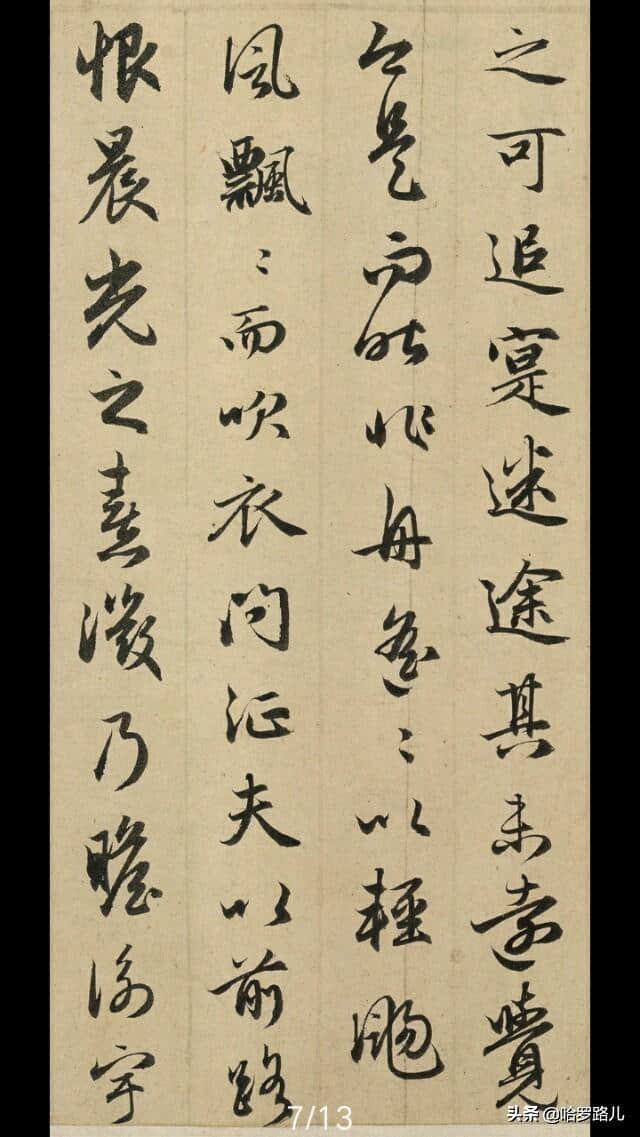 之可追寔迷途其未遠覺
今是而昨非舟遥〻以輕颺
風飄〻而吹衣問征夫以前路
恨晨光之熹微乃瞻衡宇
7/13
头条 @哈罗路儿